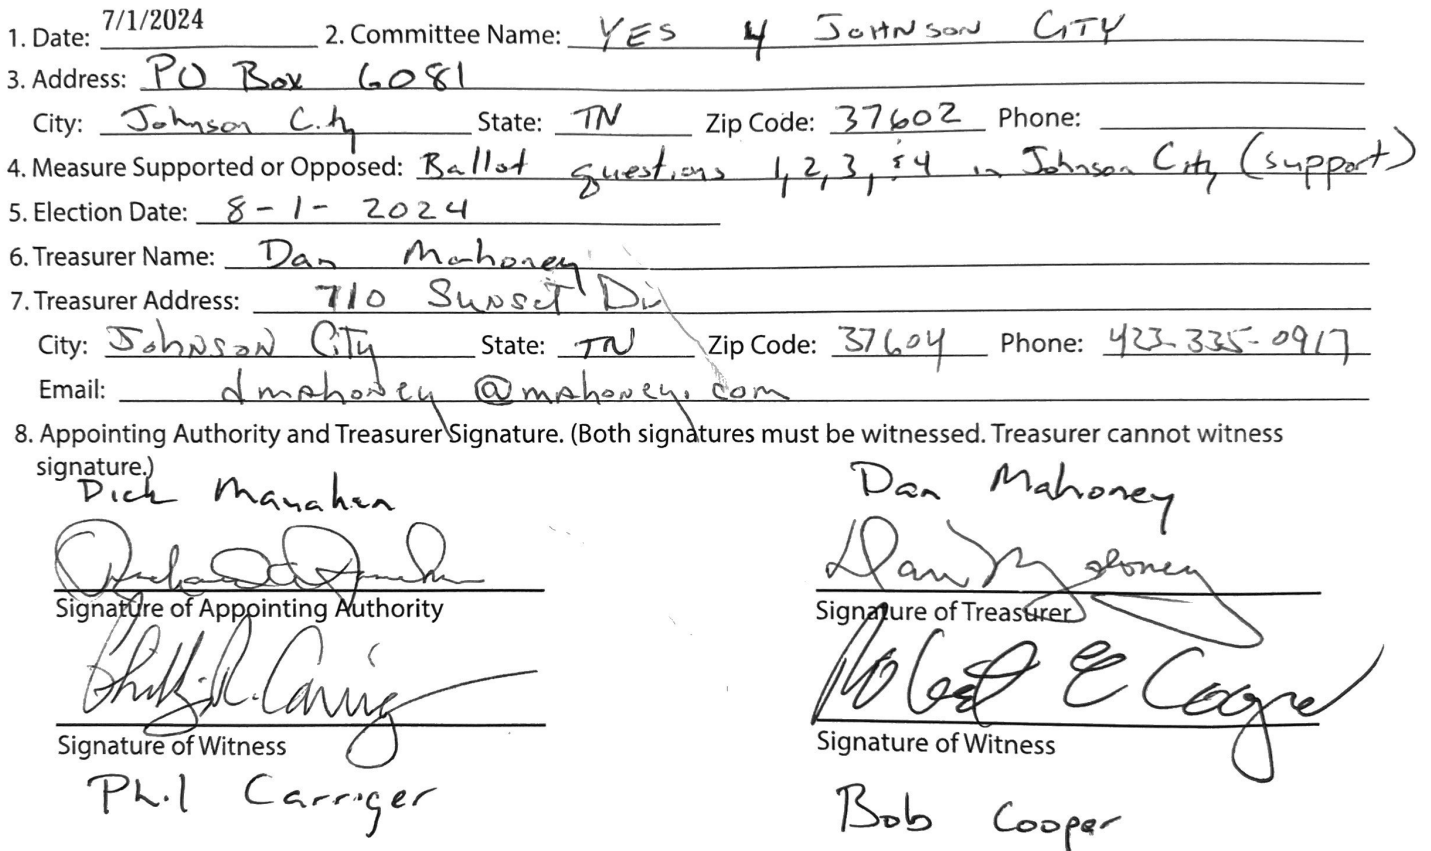 1. Date: 7/1/2024 2. Committee Name: YES 4 JOHNSON CITY
3. Address: PO Box 6081
City: Johnson City State: TN Zip Code: 37602 Phone:
4. Measure Supported or Opposed: Ballot questions 1, 2, 3, & 4 in Johnson City (support)
5. Election Date: 8-1-2024
6. Treasurer Name: Dan Mahoney
7. Treasurer Address: 710 Sunset Dr
City: Johnson City State: TN Zip Code: 37604 Phone: 423-335-0917
Email: dmahoney@mahoney.com
8. Appointing Authority and Treasurer Signature. (Both signatures must be witnessed. Treasurer cannot witness
signature.)
Dick Manahen Dan Mahoney
Dan Mahoney
Signature of Appointing Authority Signature of Treasurer
Robert E Cooper
Signature of Witness Signature of Witness
Phil Carriger Bob Cooper